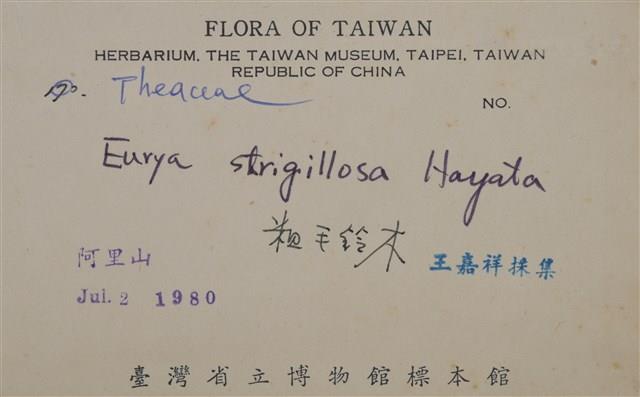 FLORA OF TAIWAN
HERBARIUM, THE TAIWAN MUSEUM, TAIPEI, TAIWAN
REPUBLIC OF CHINA
170. Theaceae
NO.
Eurya strigillosa Hayata
粗毛鈴木
阿里山
王嘉祥採集
Jul. 2 1980
臺灣省立博物館標本館